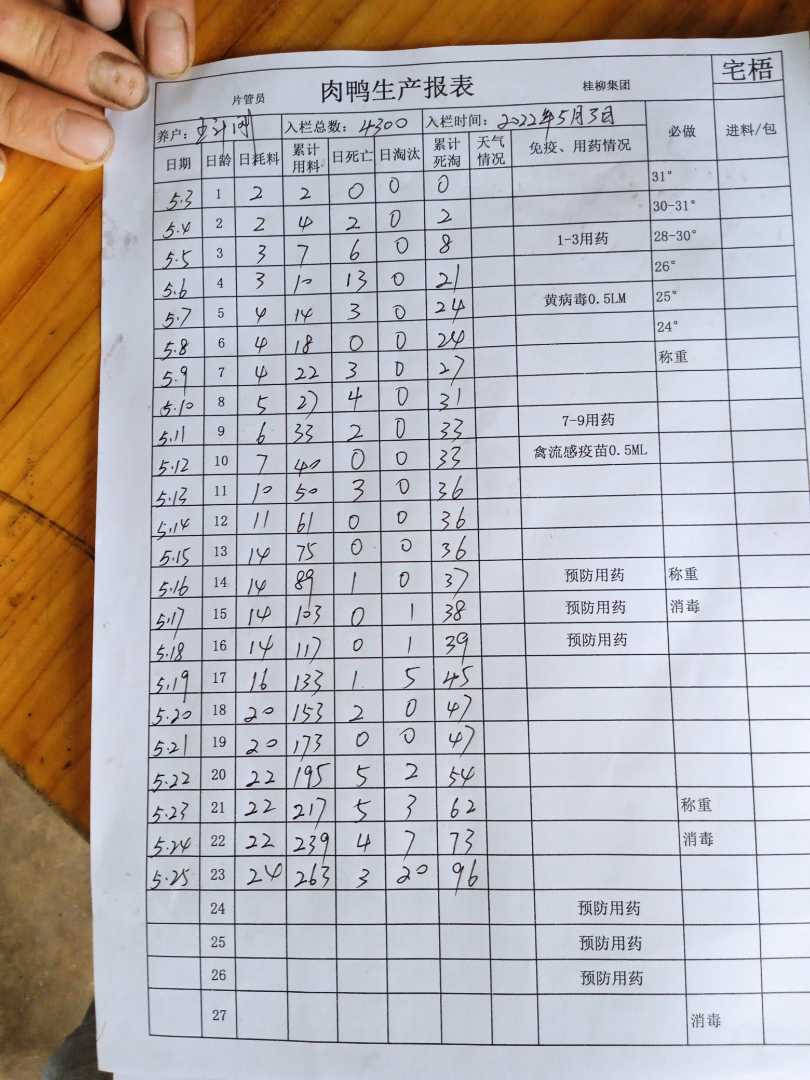 宅梧
片管员 肉鸭生产报表 桂柳集团
养户: 入栏总数: 4300 入栏时间: 2022年5月3日 必做 进料/包
日期 日龄 日耗料 累计用料 日死亡 日淘汰 累计死淘 天气情况 免疫、用药情况
5.3 1 2 2 0 0 0 31°
5.4 2 2 4 2 0 2 30-31°
5.5 3 3 7 6 0 8 1-3用药 28-30°
5.6 4 3 10 13 0 21 26°
5.7 5 4 14 3 0 24 黄病毒0.5LM 25°
5.8 6 4 18 0 0 24 24°
5.9 7 4 22 3 0 27 称重
5.10 8 5 27 4 0 31
5.11 9 6 33 2 0 33 7-9用药
5.12 10 7 40 0 0 33 禽流感疫苗0.5ML
5.13 11 10 50 3 0 36
5.14 12 11 61 0 0 36
5.15 13 14 75 0 0 36
5.16 14 14 89 1 0 37 预防用药 称重
5.17 15 14 103 0 1 38 预防用药 消毒
5.18 16 14 117 0 1 39 预防用药
5.19 17 16 133 1 5 45
5.20 18 20 153 2 0 47
5.21 19 20 173 0 0 47
5.22 20 22 195 5 2 54
5.23 21 22 217 5 3 62 称重
5.24 22 22 239 4 7 73 消毒
5.25 23 24 263 3 20 96
24 预防用药
25 预防用药
26 预防用药
27 消毒